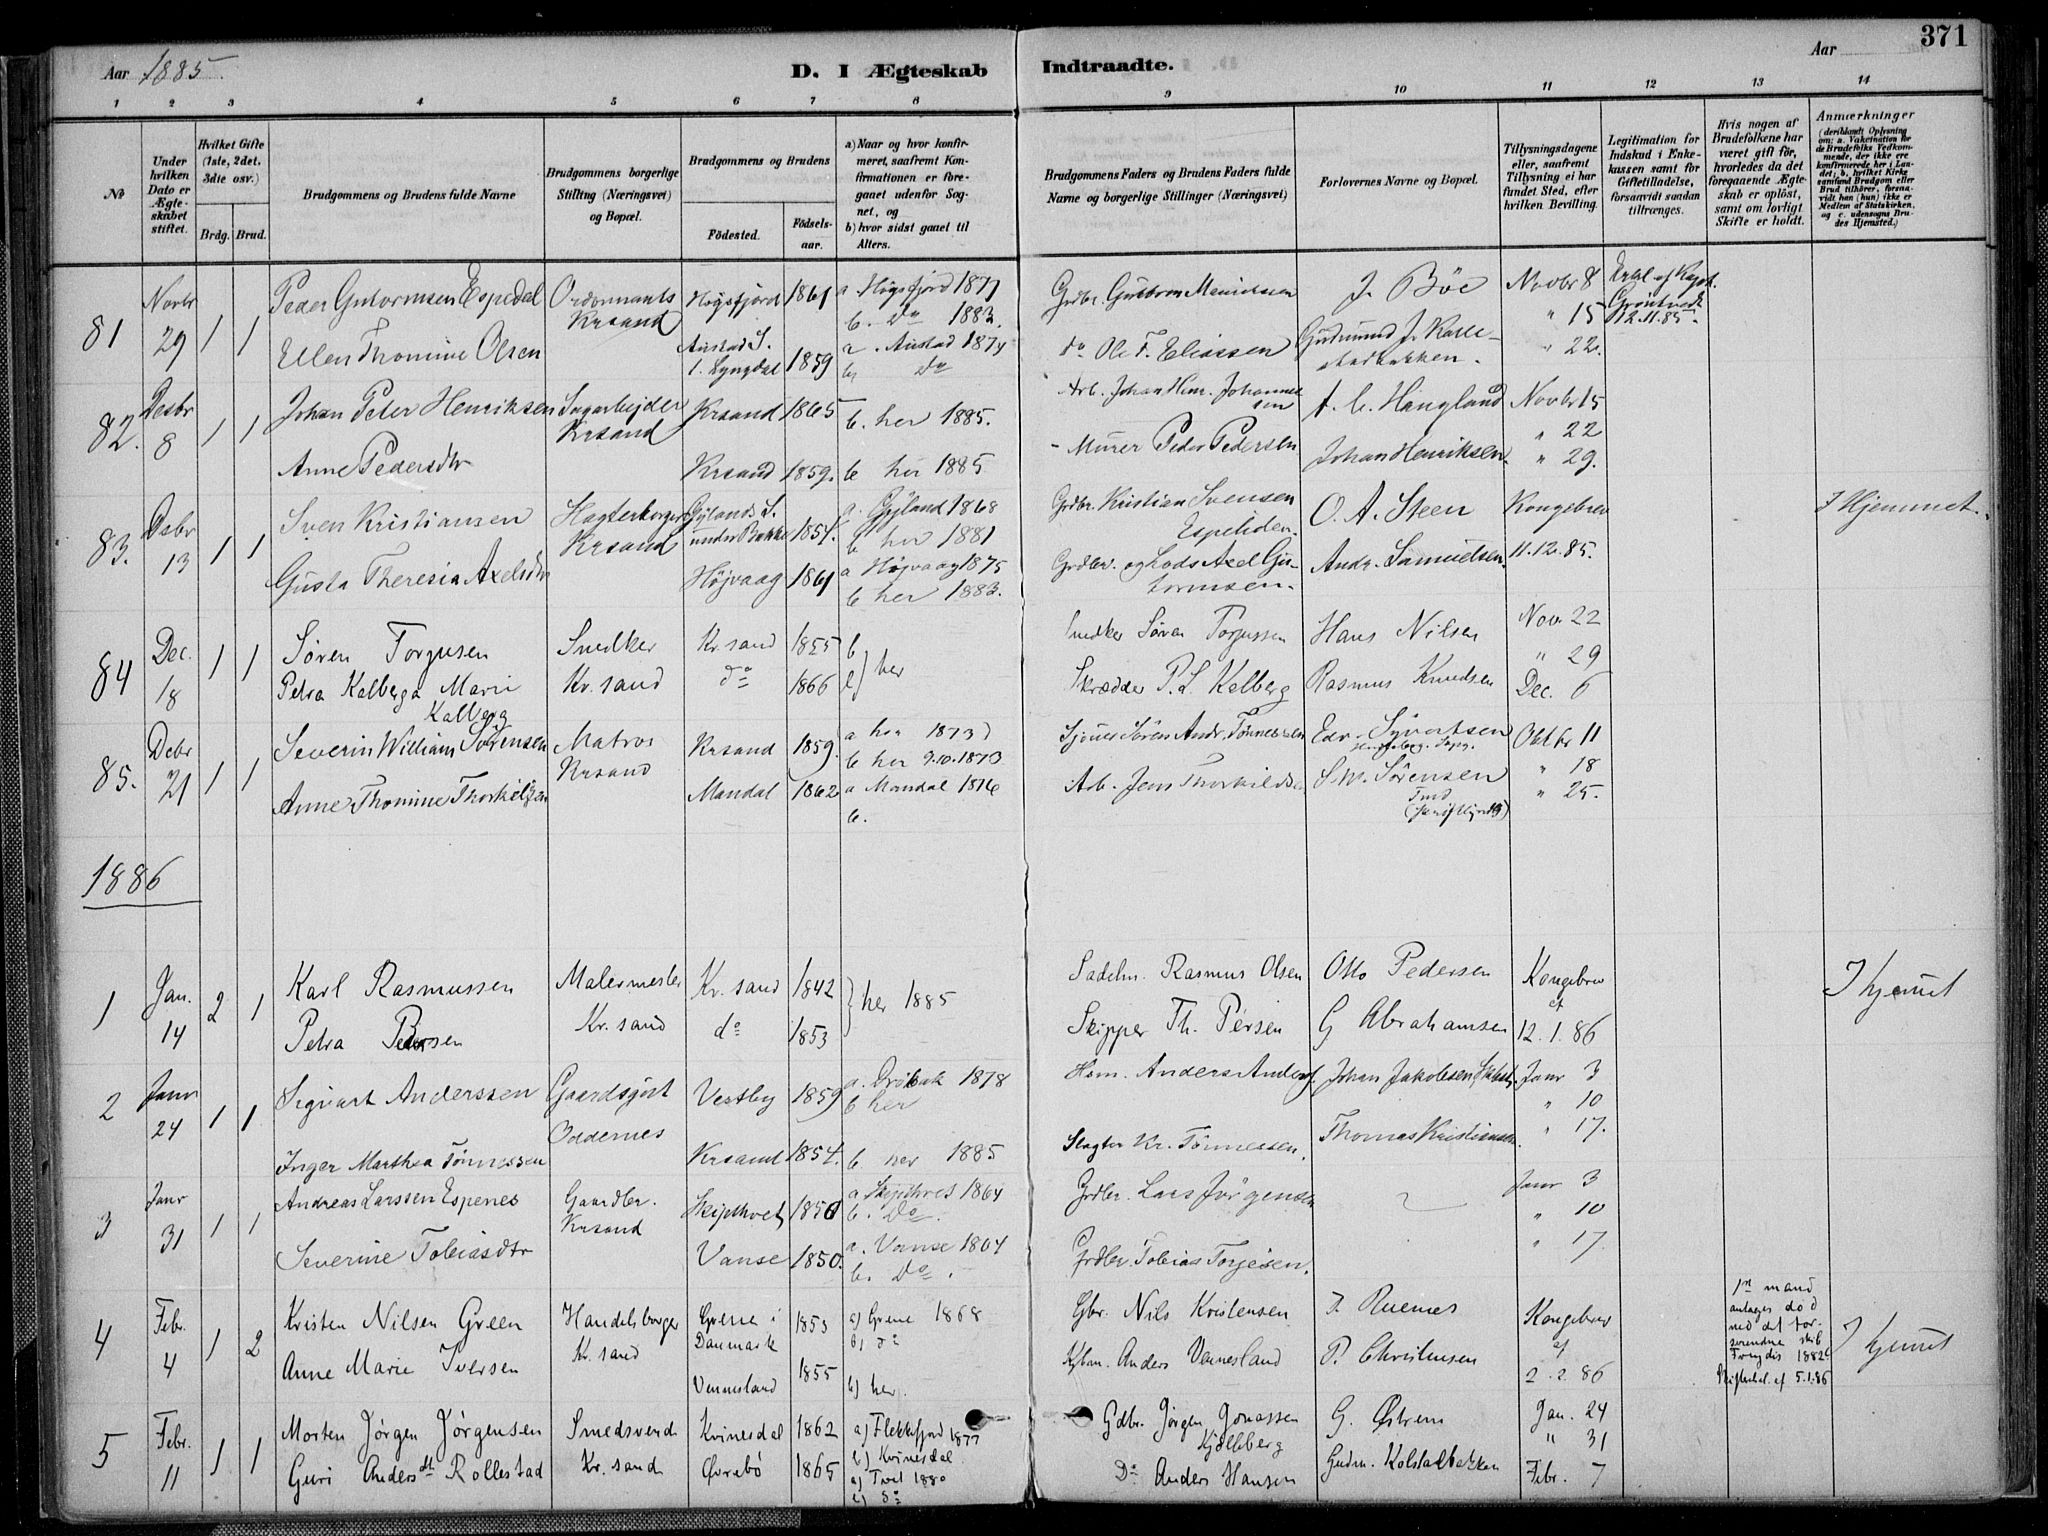 371
Aar 1885.
D. I Ægteskab Indtraadte.
Aar
1 2 3 4 5 6 7 8 9 10 11 12 13 14
№
Under hvilken Dato er Ægteskabet stiftet.
Hvilket Gifte (1ste, 2det, 3die osv.)
Brdg. Brud.
Brudgommens og Brudens fulde Navne
Brudgommens borgerlige Stilling (Næringsvei) og Bopæl.
Brudgommens og Brudens
Födested. Födselsaar.
a) Naar og hvor konfirmeret, saafremt Konfirmationen er foregaaet udenfor Sognet, og
b) hvor sidst gaaet til Alters.
Brudgommens Faders og Brudens Faders fulde Navne og borgerlige Stillinger (Næringsvei)
Forlovernes Navne og Bopæl.
Tillysningsdagene eller, saafremt Tillysning ei har fundet Sted, efter hvilken Bevilling.
Legitimation for Indskud i Enkekassen samt for Giftetilladelse, forsaavidt saadan tiltrænges.
Hvis nogen af Brudefolkene har været gift för, hvorledes da det foregaaende Ægteskab er oplöst, samt om lovligt Skifte er holdt.
Anmærkninger
(deriblandt Oplysning om: a. Vakcination for de Brudefolks Vedkommende, der ikke ere konfirmerede her i Landet; b. hvilket Kirkesamfund Brudgom eller Brud tilhörer, forsaavidt han (hun) ikke er Medlem af Statskirken, og c. udensogns Brudes Hjemsted.)
81 Novbr 29 1 1 Peder Gutormsen Espedal Ordonnants Krsand Høgsfjord 1861 a Høgsfjord 1877 b. Do 1883. Grdbr. Guttorm J. Böe Novbr 8 Erkl. af Kapt. 12.11.85.
Ellen Thomine Olsen Austad S. i Lyngdal 1859 a. Austad 1874 b) Do do Ole T. Eliassen Gudmund J. " 15 " 22.
82. Desbr 8 1 1 Johan Peter Henriksen Krsand Krsand 1865 b. her 1885. Arb. Johan Henr. Johannessen A. C. Haugland Novbr 15
Anne Pedersdtr Krsand 1859. b her 1885 - Murer Peder Pedersen Johan Henriksen. " 22 " 29.
83. Debr 13 1 1 Sven Kristiansen Krsand Gylands S. under Bakke 1854. a. Gyland 1868 b her 1881 Grdbr. Kristian Svensen Espeliden. O. A. Steen Kongebrev I Hjemmet.
Gusta Theresia Axelsdtr Höjvaag 1861 a Höjvaag 1875 b her 1883. Grdbr. og Lods Axel Gutormsen. Andr. Samuelsen. 11.12.85.
84 Dec. 18 1 1 Søren Torgusen Snedker Kr. sand 1855 b) her Snedker Søren Torgussen Hans Nilsen Nov. 22
Petra Kalberga Marie Kalberg Kr. sand do 1866 b) Skrædder P. L. Kalberg Rasmus Knudsen " 29 Dec. 6
85. Debr 21 1 1 Severin William Sörensen Matros Krsand Krsand 1859. a her 1873) b her 9.10.1873 Sjöm. Sören Andr. Tönnessen Edv. Syvertsen Oktbr 11
Anne Thomine Thorkildsen Mandal 1862 a Mandal 1876 b. Arb. Jens Thorkildsen S. W. Sörensen " 18 " 25.
1886
1 Jan. 14 2 1 Karl Rasmussen Malermester Kr. sand 1842 } her 1885 Sadelm. Rasmus Olsen Otto Pedersen Kongebrev af I hjemmet
Petra Persen Kr. sand do 1853 Skipper Th. Persen G Abrahamsen 12.1.86
2 Janr 24 1 1 Sigvart Anderssen Gaardsgut Oddernes Vestby 1859 a. Dröbak 1878 b her Hom. Anders Anders. Johan Jakobsen Janr 3
Inger Marthea Tönnessen Krsand 1854. b her 1885 Slagter Kr. Tönnessen. Thomas Kristiansen. " 10 " 17.
3 Janr 31 1 1 Andreas Larssen Espenes Gaardbr. Krsand Skiptvet 1850 a Skiptvet 1864 b. Do. Grdbr. Lars Jörgensen Janr 3
Severine Tobiasdtr Vanse 1850. a. Vanse 1864 b. Do. Grdbr. Tobias Torjesen. " 10 " 17.
4 Febr. 4 1 2 Kristen Nilsen Green Handelsborger Grene i Danmark 1853 a) Grene 1868 b) do Gbr. Nils Kristensen J. Ruenes Kongebrev af 1ste mand antages död med det forsvundne skib Frøydis 1882 af 5.1.86 I hjemmet
Anne Marie Iversen Kr. sand Vennesland 1855 b) her. Anders Vennesland P. Christensen 2.2.86
5 Febr. 11 1 1 Morten Jørgen Jørgensen Smedsvend Kvinesdal 1862 a) Flekkefjord 1877 b) Kvinesdal Gdbr. Jørgen Jonassen Kjellberg G. Østrem Jan. 24
Guri Andersdt Rollestad Kr. sand Øvrebö 1865 a) Tvet 1880 b) do Do Anders Hansen Gudm. Kolstadbakken " 31 Febr. 7